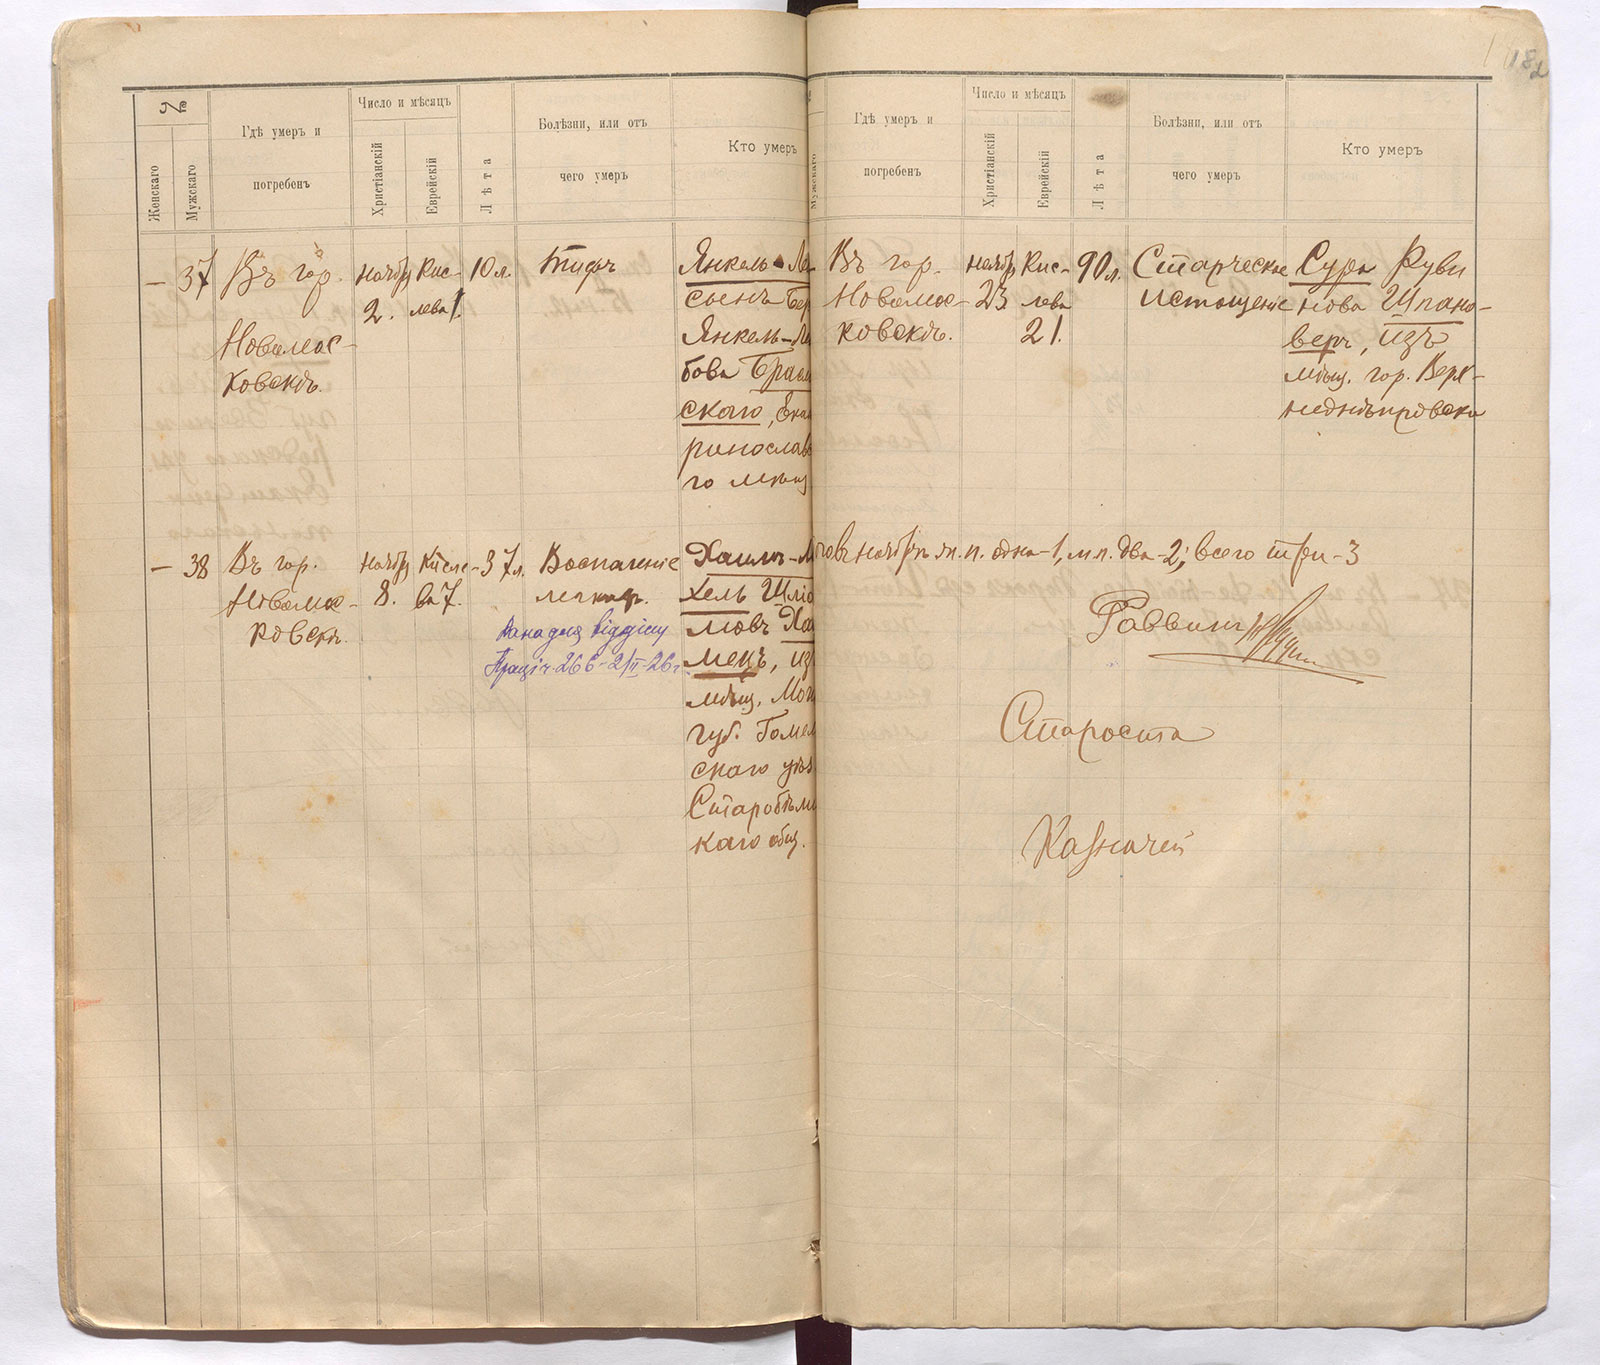 182
№
Женскаго
Мужскаго
Гдѣ умеръ и
погребенъ
Число и мѣсяцъ
Христіанскій
Еврейскій
Лѣта
Болѣзни, или отъ
чего умеръ
Кто умеръ
— 37
Въ гор.
Новомос-
ковскѣ.
нояб.
2.
Кис-
лева 1.
10 л.
Тифъ
Янкель-Ле
сынъ Бер
Янкель-Ле
бова Брасл
скаго, Екат
ринославс
го мѣщ
— 38
Въ гор.
Новомос-
ковскѣ.
нояб.
8.
Кисле-
ва 7.
37 л.
Воспаленіе
легкихъ.
Працi ч. 266 - 2/II - 26 г.
Хаимъ-М
хель Шліо
мовъ Ха
мецъ, изъ
мѣщ. Мог
губ. Гомел
скаго уѣз
Старобѣлиц
каго общ.
Мужскаго
Гдѣ умеръ и
погребенъ
Число и мѣсяцъ
Христіанскій
Еврейскій
Лѣта
Болѣзни, или отъ
чего умеръ
Кто умеръ
Въ гор.
Новомос-
ковскѣ.
нояб.
23
Кис-
лева
21.
90 л.
Старческое
истощеніе
Сура Руви
нова Шпано-
веръ, изъ
мѣщ. гор. Верх-
неднѣпровска
ноябрѣ ж. п. одна-1, м. п. два-2; всего три-3
Раввинъ
Староста
Казначей